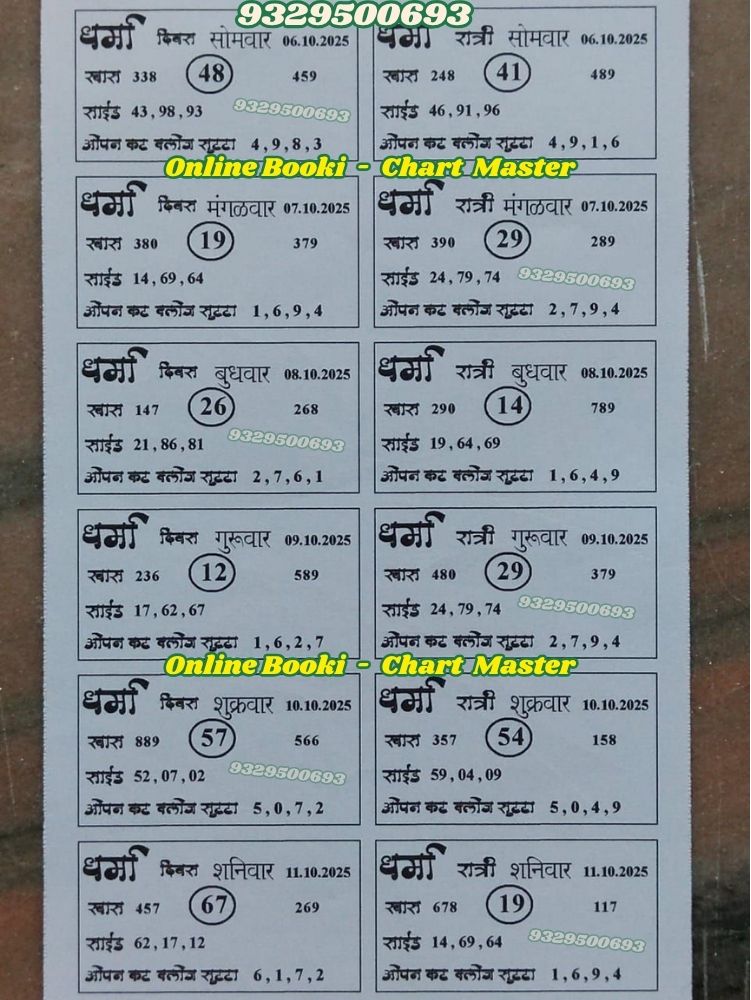 9329500693
धर्मा दिवस सोमवार 06.10.2025
खास 338 48 459
साईड 43,98,93 9329500693
ओपन कट क्लोग सुट्टा 4,9,8,3
धर्मा रात्री सोमवार 06.10.2025
खास 248 41 489
साईड 46,91,96
ओपन कट क्लोग सुट्टा 4,9,1,6
Online Booki - Chart Master
धर्मा दिवस मंगळवार 07.10.2025
खास 380 19 379
साईड 14,69,64
ओपन कट क्लोग सुट्टा 1,6,9,4
धर्मा रात्री मंगळवार 07.10.2025
खास 390 29 289
साईड 24,79,74 9329500693
ओपन कट क्लोग सुट्टा 2,7,9,4
धर्मा दिवस बुधवार 08.10.2025
खास 147 26 268
साईड 21,86,81 9329500693
ओपन कट क्लोग सुट्टा 2,7,6,1
धर्मा रात्री बुधवार 08.10.2025
खास 290 14 789
साईड 19,64,69
ओपन कट क्लोग सुट्टा 1,6,4,9
धर्मा दिवस गुरूवार 09.10.2025
खास 236 12 589
साईड 17,62,67
ओपन कट क्लोग सुट्टा 1,6,2,7
धर्मा रात्री गुरूवार 09.10.2025
खास 480 29 379
साईड 24,79,74 9329500693
ओपन कट क्लोग सुट्टा 2,7,9,4
Online Booki - Chart Master
धर्मा दिवस शुक्रवार 10.10.2025
खास 889 57 566
साईड 52,07,02 9329500693
ओपन कट क्लोग सुट्टा 5,0,7,2
धर्मा रात्री शुक्रवार 10.10.2025
खास 357 54 158
साईड 59,04,09
ओपन कट क्लोग सुट्टा 5,0,4,9
धर्मा दिवस शनिवार 11.10.2025
खास 457 67 269
साईड 62,17,12
ओपन कट क्लोग सुट्टा 6,1,7,2
धर्मा रात्री शनिवार 11.10.2025
खास 678 19 117
साईड 14,69,64 9329500693
ओपन कट क्लोग सुट्टा 1,6,9,4